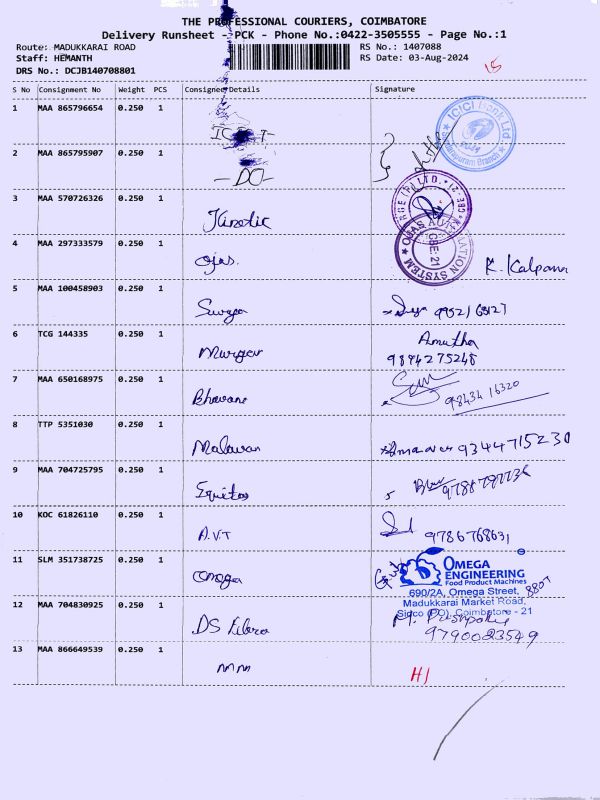 THE PROFESSIONAL COURIERS, COIMBATORE
Delivery Runsheet - PCK - Phone No.:0422-3505555 - Page No.:1
Route: MADUKKARAI ROAD
RS No.: 1407088
Staff: HEMANTH
RS Date: 03-Aug-2024
DRS No.: DCJB140708801
15
S No Consignment No Weight PCS Consignee Details Signature
1 MAA 865796654 0.250 1
ICICI Bank Ltd
Sundarapuram Branch
2 MAA 865795907 0.250 1
- DO -
3 MAA 570726326 0.250 1
Kinetic
4 MAA 297333579 0.250 1
Ojas. CBE-21 R. Kalpana
5 MAA 100458903 0.250 1
Surya
6 TCG 144335 0.250 1 Amutha
Murgan 9894275248
7 MAA 650168975 0.250 1
Bhavani 98434 16320
8 TTP 5351030 0.250 1
Malawan 9344715230
9 MAA 704725795 0.250 1
Equitas
10 KOC 61826110 0.250 1
A.V.T 9786768631
11 SLM 351738725 0.250 1
Omega
OMEGA
ENGINEERING
Food Product Machines
690/2A, Omega Street,
12 MAA 704830925 0.250 1
Madukkarai Market Road,
Sidco (PO), Coimbatore - 21
DS Fibro
9790023549
13 MAA 866649539 0.250 1
mm HJ